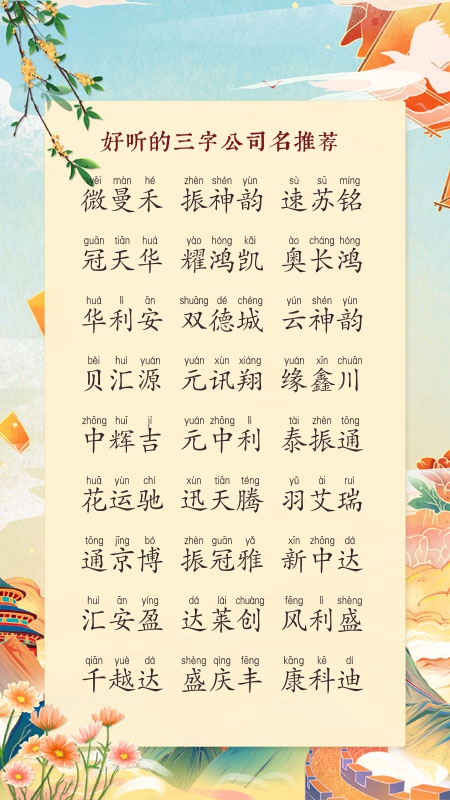 好听的三字公司名推荐
wēi màn hé zhèn shén yùn sù sū míng
微曼禾 振神韵 速苏铭
guān tiān huá yào hóng kǎi ào cháng hóng
冠天华 耀鸿凯 奥长鸿
huá lì ān shuāng dé chéng yún shén yùn
华利安 双德城 云神韵
bèi huì yuán yuán xùn xiáng yuán xīn chuān
贝汇源 元讯翔 缘鑫川
zhōng huī jí yuán zhōng lì tài zhèn tōng
中辉吉 元中利 泰振通
huā yùn chí xùn tiān téng yǔ ài ruì
花运驰 迅天腾 羽艾瑞
tōng jīng bó zhèn guān yǎ xīn zhōng dá
通京博 振冠雅 新中达
huì ān yíng dá lái chuàng fēng lì shèng
汇安盈 达莱创 风利盛
qiān yuè dá shèng qìng fēng kāng kē dí
千越达 盛庆丰 康科迪